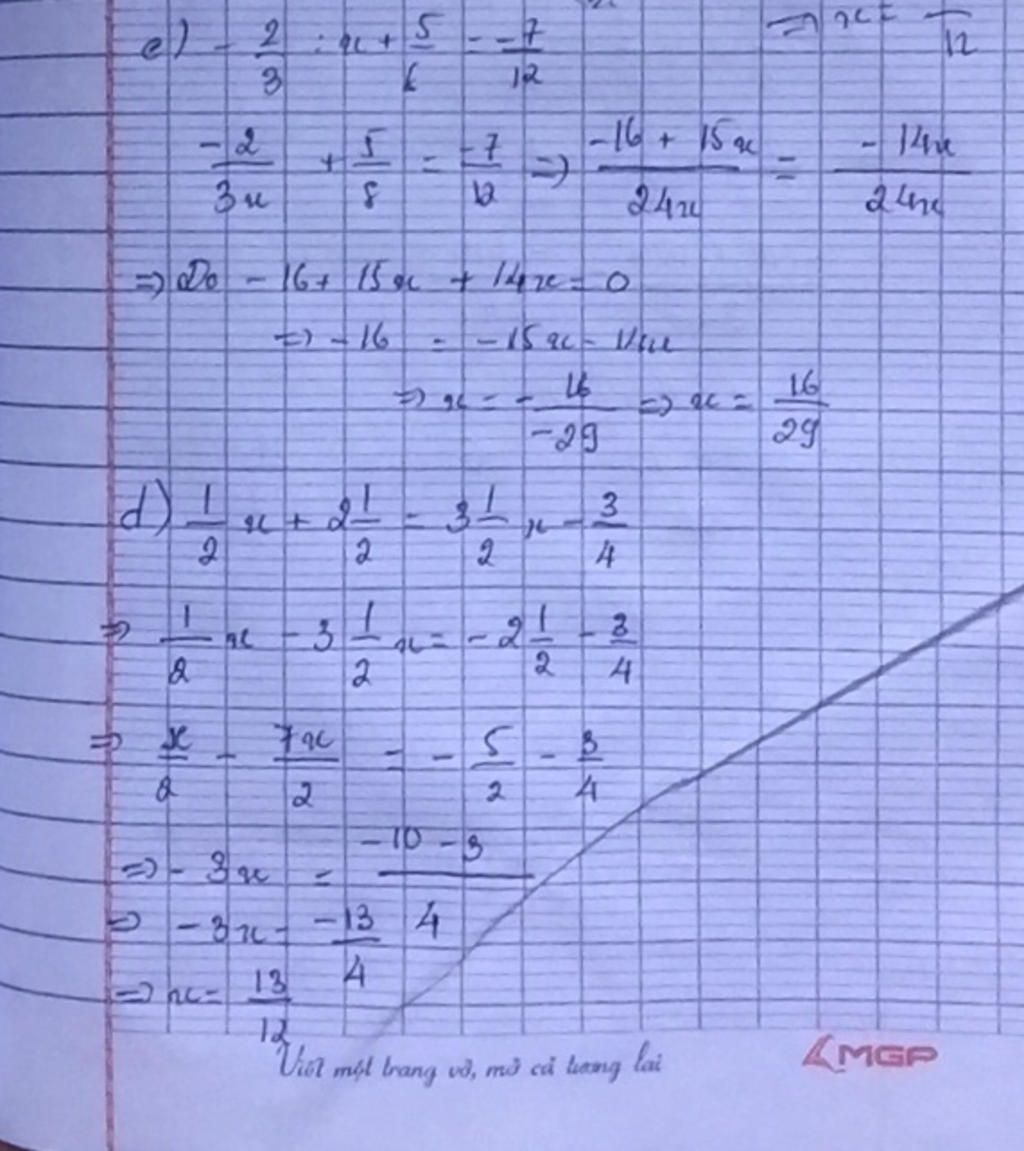 e) - 2/3 : x + 5/6 = -7/12
=> x = /12
-2/3x + 5/8 = -7/12 => -16 + 15x/24x = -14x/24x
=> Do -16 + 15x + 14x = 0
=> -16 = -15x - 14x
=> x = - 16/-29 => x = 16/29
d) 1/2 x + 2 1/2 = 3 1/2 x - 3/4
=> 1/2 x - 3 1/2 x = -2 1/2 - 3/4
=> x/2 - 7x/2 = - 5/2 - 3/4
=> - 3x = -10 - 3/4
=> - 3x = -13/4
=> x = 13/12
Viết một trang vở, mở cả tương lai
MGP